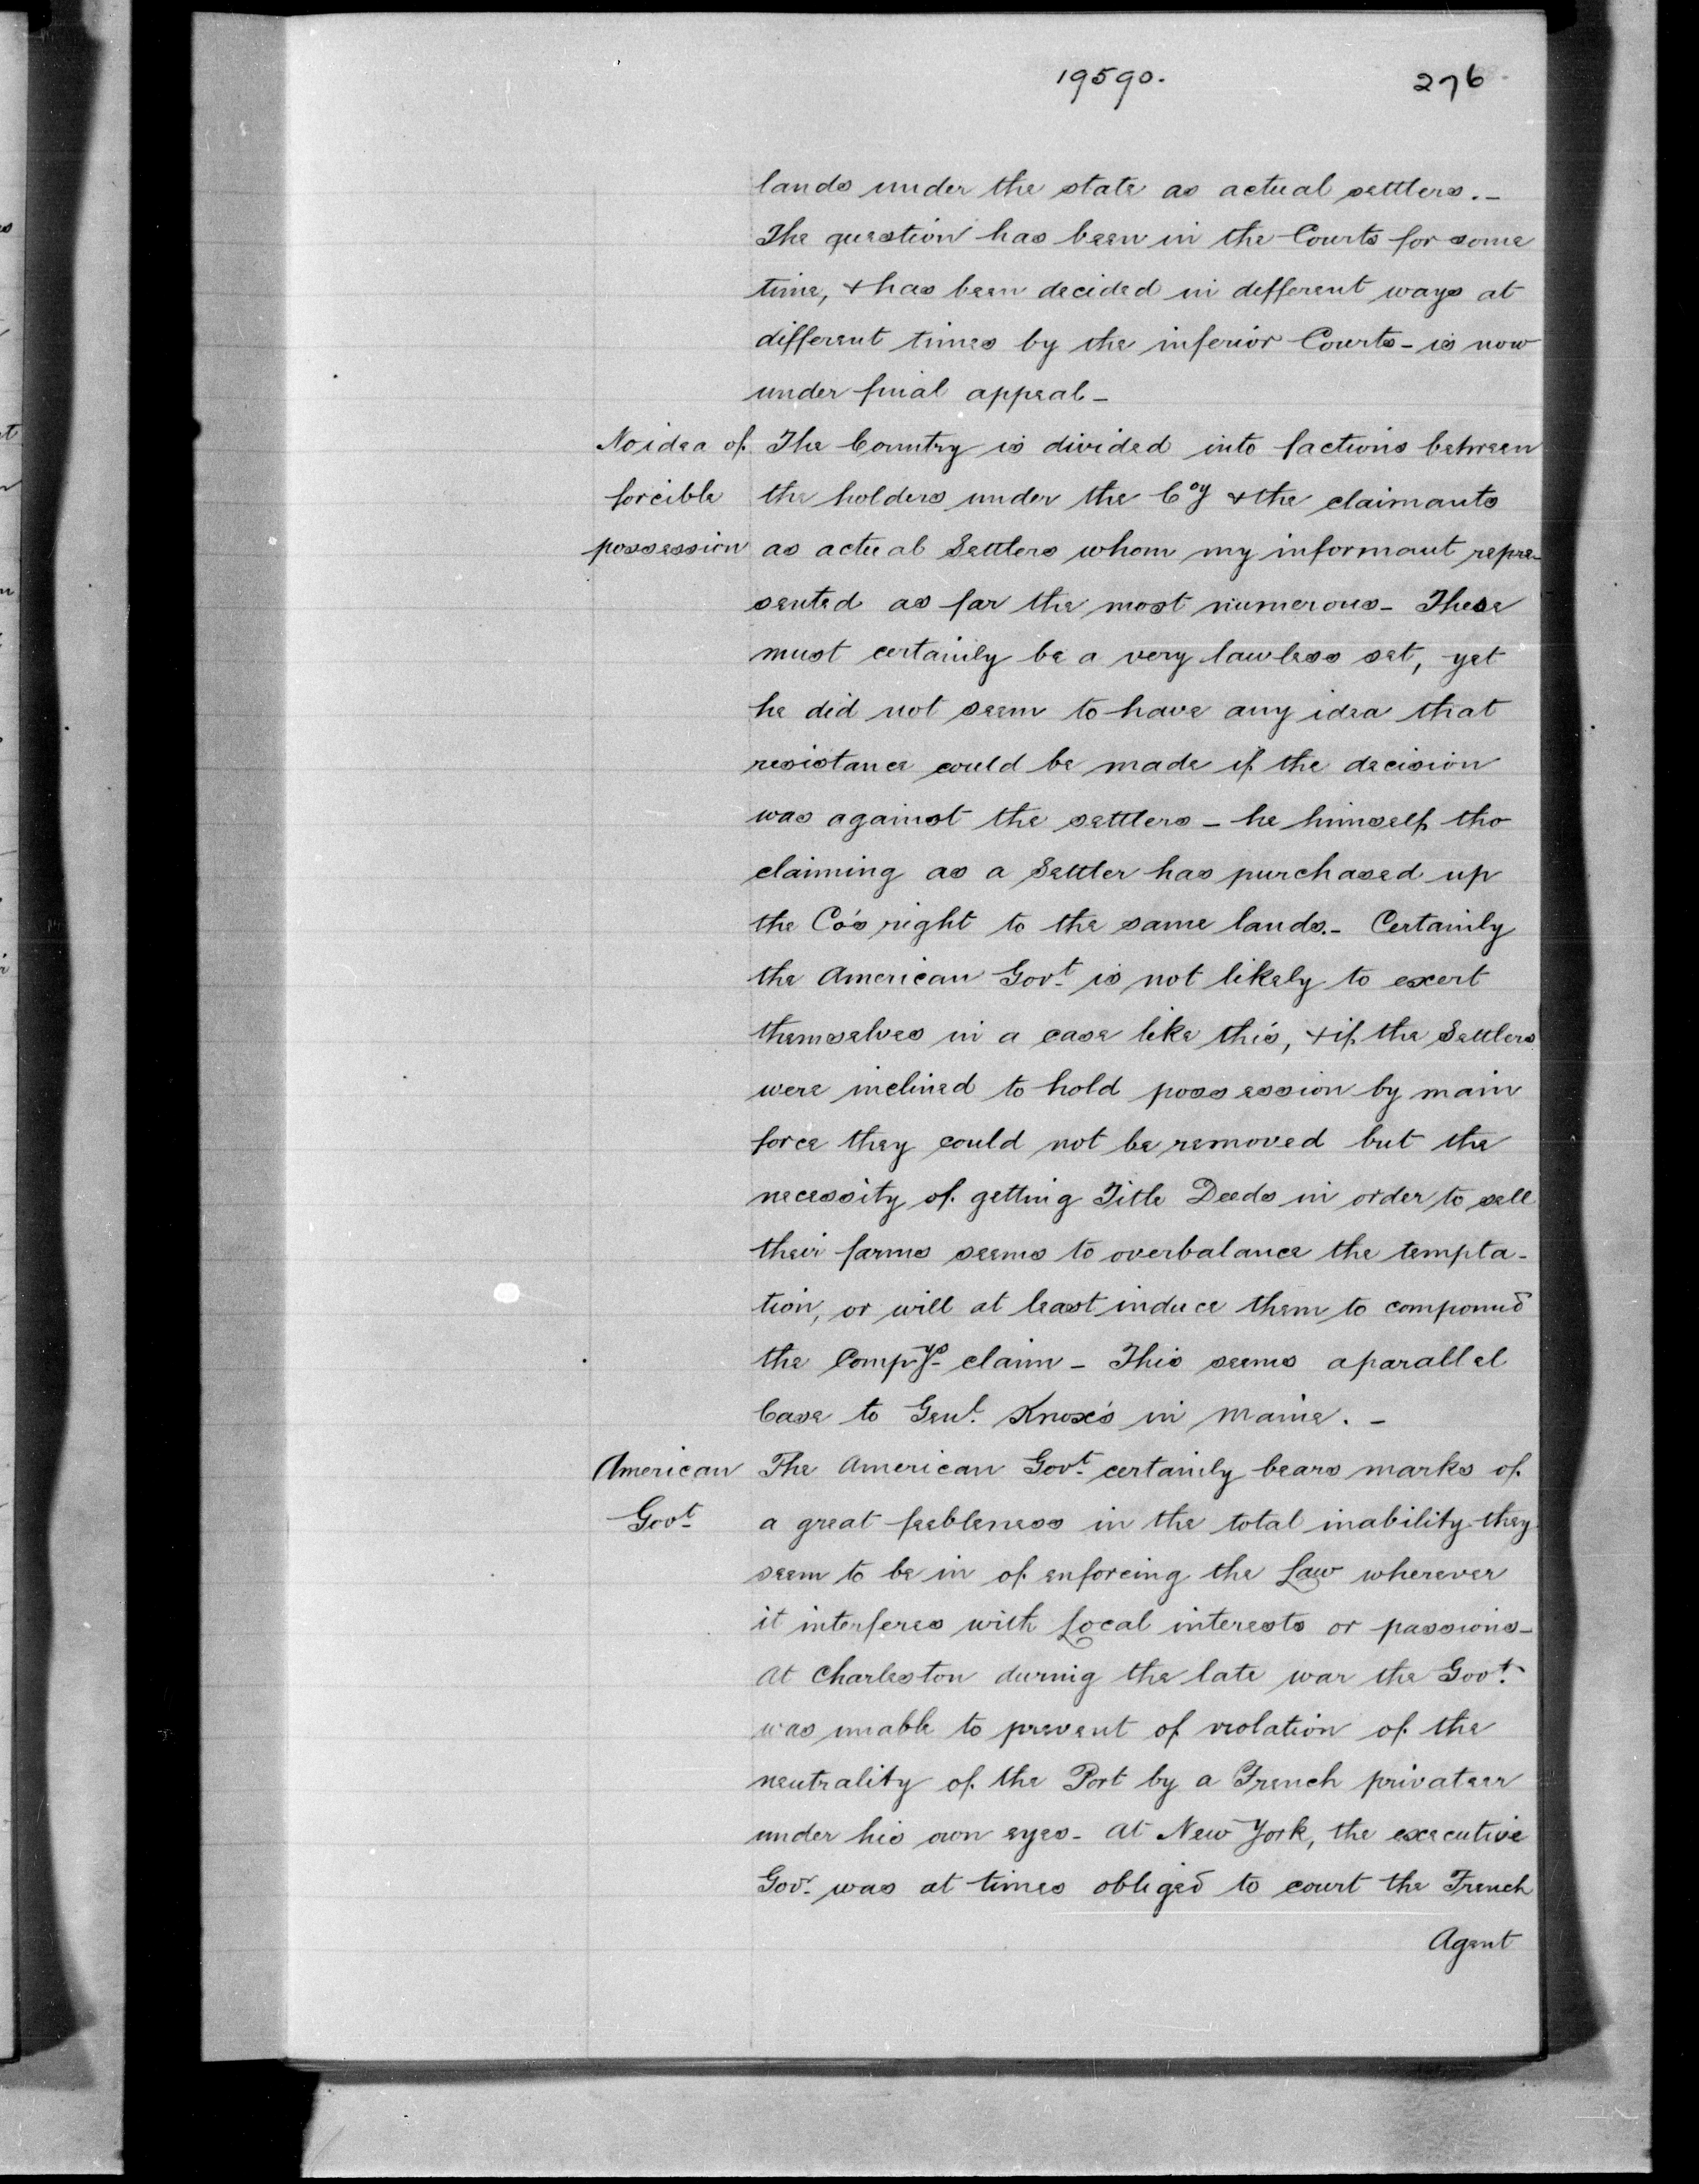 19590. 276
lands under the state as actual settlers.-
The question has been in the Courts for some
time, & has been decided in defferent ways at
different times by the inferior Courts - is now
under final appeal -
No idea of The Country is divided into factions between
forcible the holders under the Coy & the claimants
possession as actual Settlers whom my informant repre-
sented as far the most numerous - These
must certainly be a very lawless set, yet
he did not seem to have any idea that
resistance could be made if the decision
was against the settlers - he himself tho
claiming as a Settler has purchased up
the Co's right to the same lands.- Certainly
the American Govt is not likely to exert
themselves in a case like this, & if the Settlers
were inclined to hold possession by main
force they could not be removed but the
necessity of getting Title Deeds in order to sell
their farms seems to overbalance the tempta-
tion, or will at least induce them to compound
the Compys claim - This seems a parallel
Case to Genl. Knox's in Maine. -
American The American Govt. certainly bears marks of
Govt a great feebleness in the total inability they
seem to be in of enforcing the Law wherever
it interferes with Local interests or passions -
At Charleston during the late war the Govt.
was unable to prevent of violation of the
neutrality of the Port by a French privateer
under his own eyes - At New York, the executive
Govr. was at times obliged to court the French
Agent